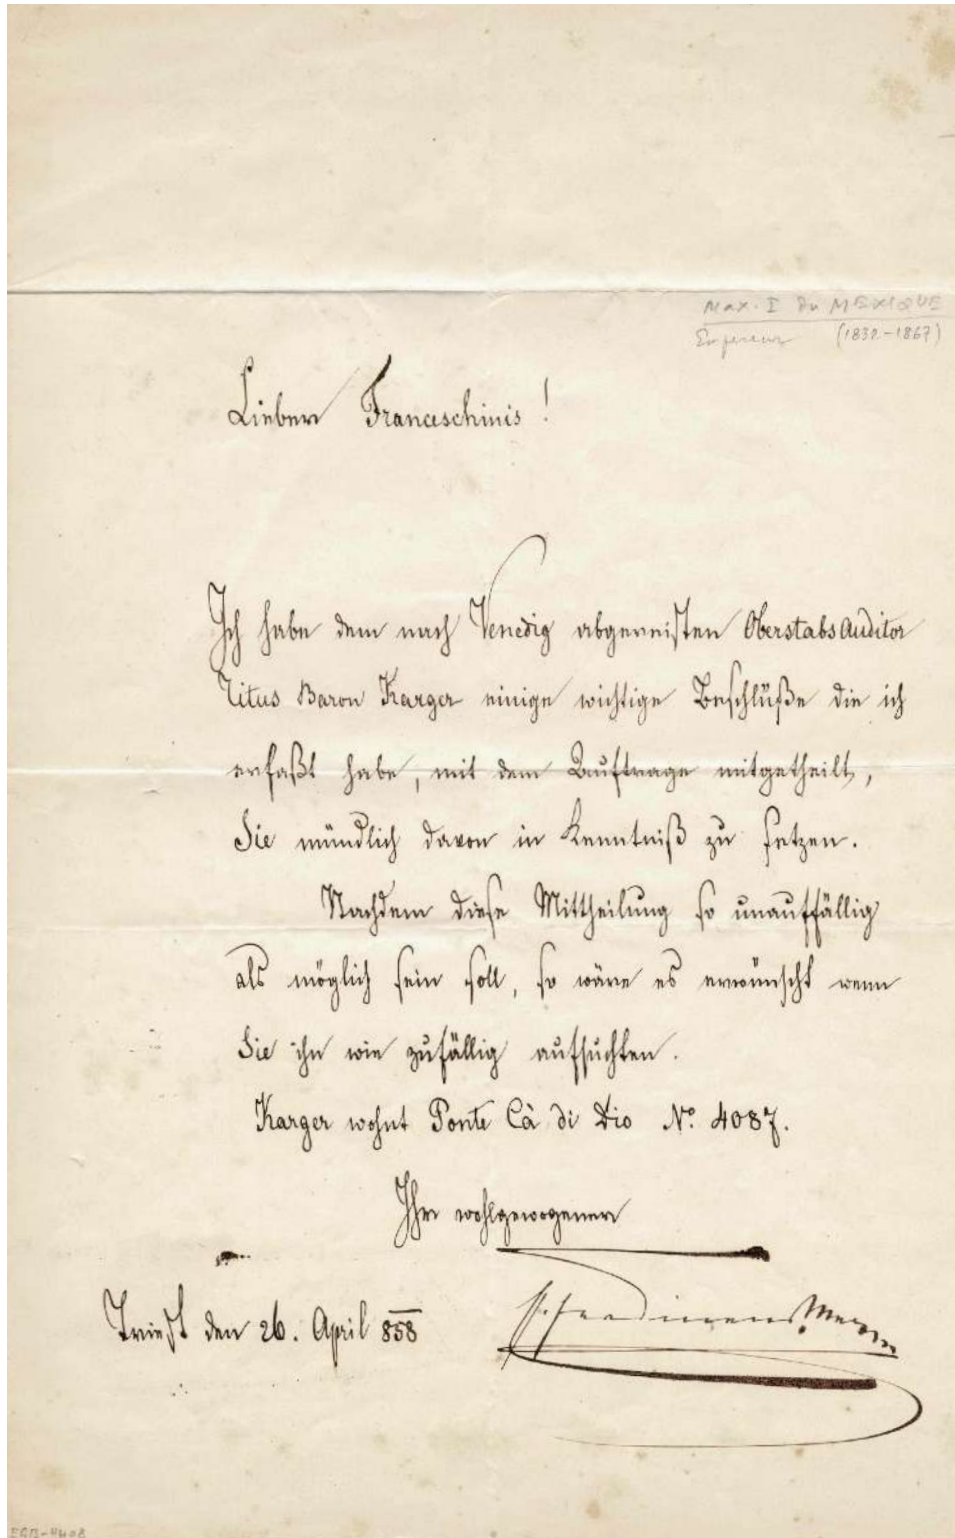 Max. I du MEXIQUE
Empereur (1832-1867)
Lieber Franceschinis!
Ich habe dem nach Venedig abgereisten Oberstabsauditor
Titus Baron Karger einige wichtige Beschlüße die ich
erfaßt habe, mit dem Auftrage mitgetheilt,
Sie mündlich davon in Kenntniß zu setzen.
Nachdem diese Mittheilung so unauffällig
als möglich sein soll, so wäre es erwünscht wenn
Sie ihn wie zufällig aufsuchten.
Karger wohnt Ponte Cà di Dio No. 4087.
Ihr wohlgewogener
Triest den 26. April 858
Ferdinand Max